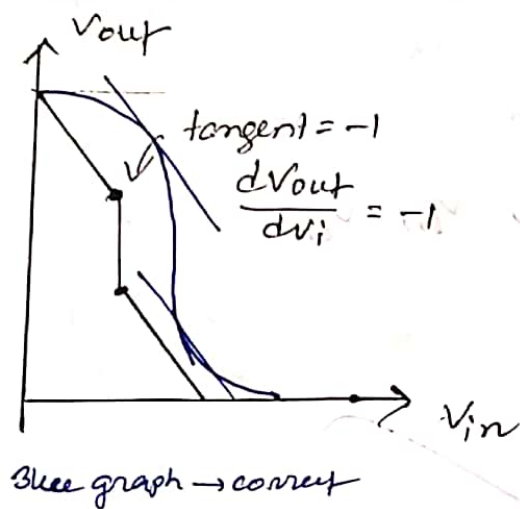 Vout
tangent = -1
dVout
dvi
= -1
Vin
Blue graph → correct